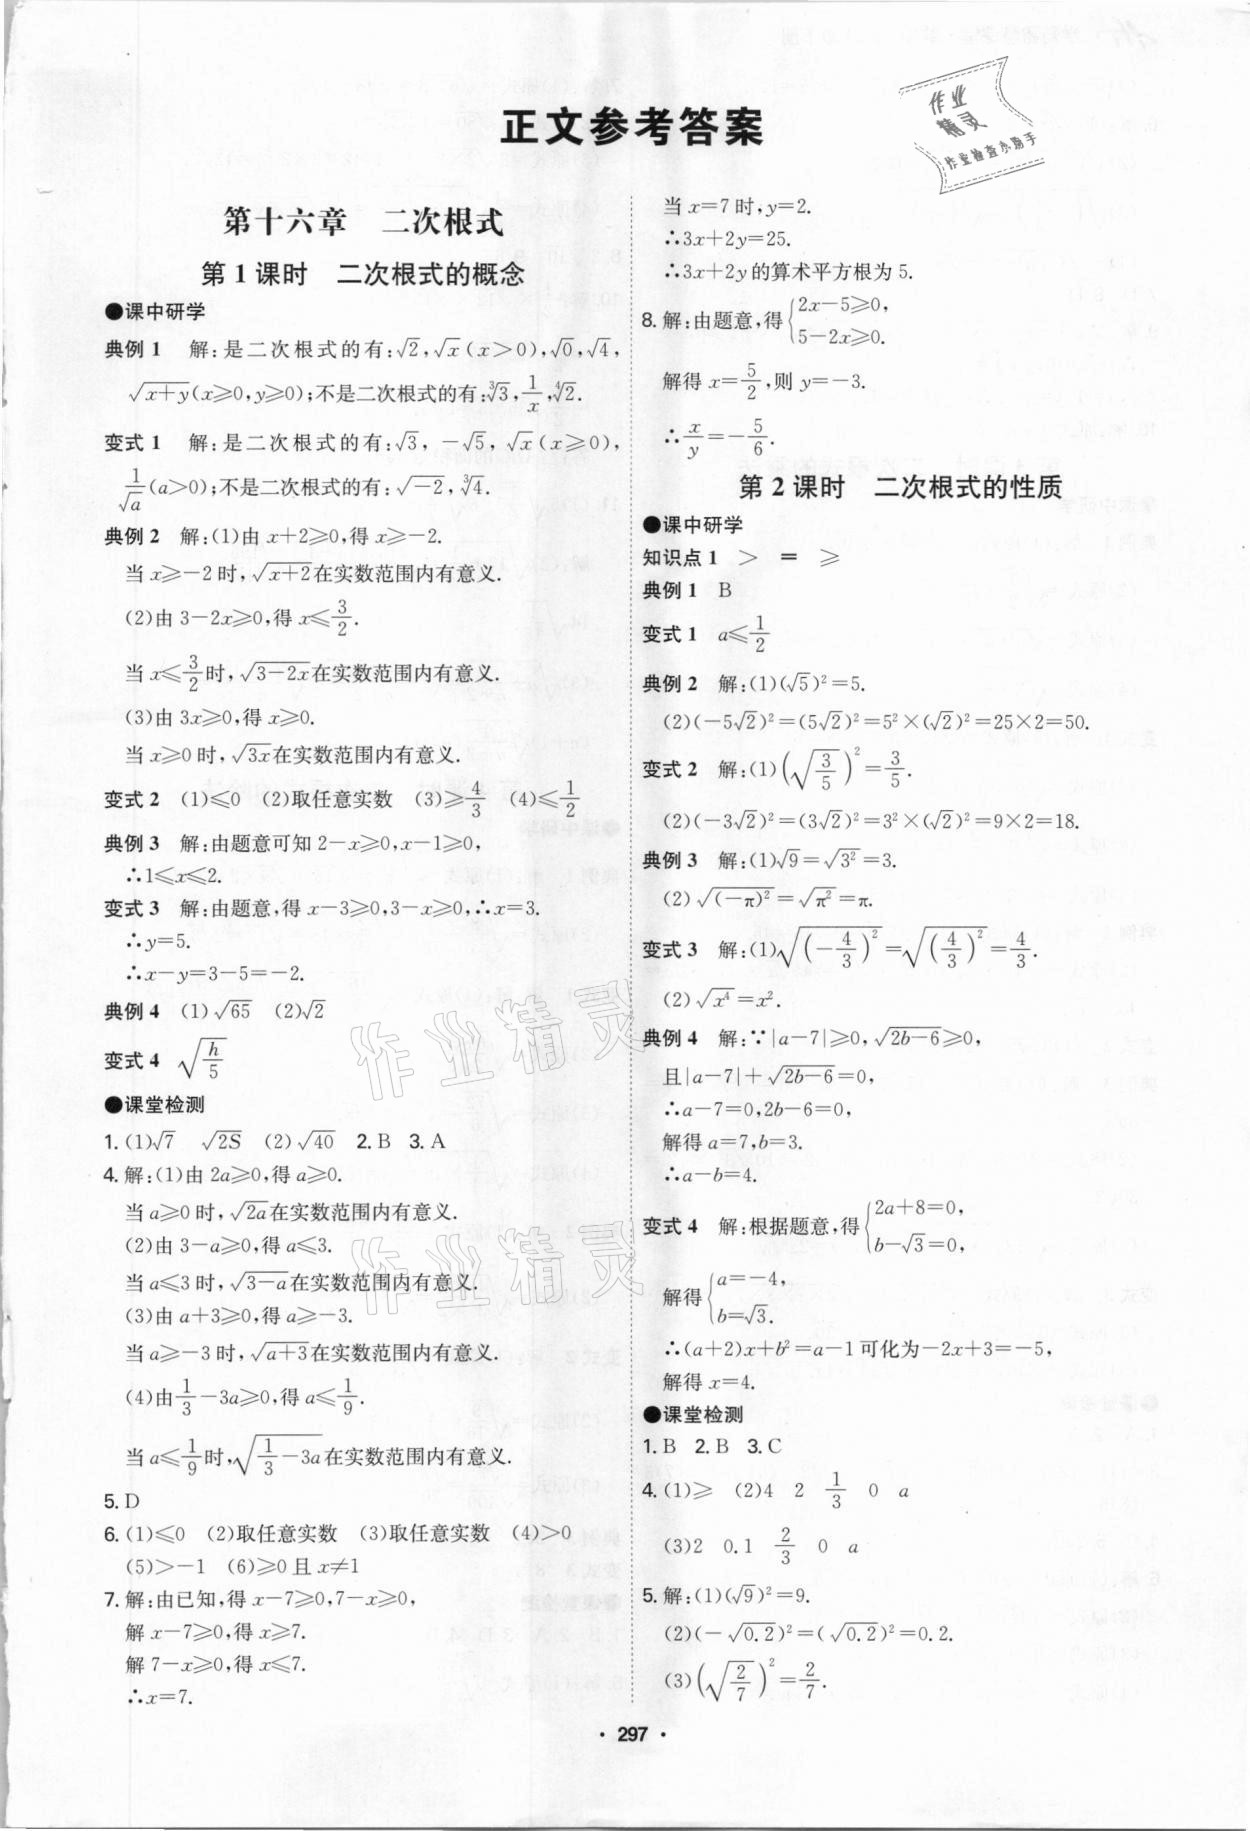 正文参考答案
作业
精灵
作业检查小助手
第十六章　二次根式
第1课时　二次根式的概念
●课中研学
典例1　解:是二次根式的有:√2,√x(x>0),√0,√4,
√(x+y)(x≥0,y≥0);不是二次根式的有:∛3,1/x,∜2.
变式1　解:是二次根式的有:√3,-√5,√x(x≥0),
1/√a(a>0);不是二次根式的有:√-2,∛4.
典例2　解:(1)由x+2≥0,得x≥-2.
当x≥-2时,√(x+2)在实数范围内有意义.
(2)由3-2x≥0,得x≤3/2.
当x≤3/2时,√(3-2x)在实数范围内有意义.
(3)由3x≥0,得x≥0.
当x≥0时,√(3x)在实数范围内有意义.
变式2　(1)≤0　(2)取任意实数　(3)≥4/3　(4)≤1/2
典例3　解:由题意可知2-x≥0,x-1≥0,
∴1≤x≤2.
变式3　解:由题意,得x-3≥0,3-x≥0,∴x=3.
∴y=5.
∴x-y=3-5=-2.
典例4　(1)√65　(2)√2
变式4　√(h/5)
●课堂检测
1.(1)√7　√(2S)　(2)√40　2.B　3.A
4.解:(1)由2a≥0,得a≥0.
当a≥0时,√(2a)在实数范围内有意义.
(2)由3-a≥0,得a≤3.
当a≤3时,√(3-a)在实数范围内有意义.
(3)由a+3≥0,得a≥-3.
当a≥-3时,√(a+3)在实数范围内有意义.
(4)由1/3-3a≥0,得a≤1/9.
当a≤1/9时,√(1/3-3a)在实数范围内有意义.
5.D
6.(1)≤0　(2)取任意实数　(3)取任意实数　(4)>0
(5)>-1　(6)≥0且x≠1
7.解:由已知,得x-7≥0,7-x≥0,
解x-7≥0,得x≥7.
解7-x≥0,得x≤7.
∴x=7.
当x=7时,y=2.
∴3x+2y=25.
∴3x+2y的算术平方根为5.
8.解:由题意,得{2x-5≥0,
5-2x≥0.
解得x=5/2,则y=-3.
∴x/y=-5/6.
第2课时　二次根式的性质
●课中研学
知识点1　>　=　≥
典例1　B
变式1　a≤1/2
典例2　解:(1)(√5)²=5.
(2)(-5√2)²=(5√2)²=5²×(√2)²=25×2=50.
变式2　解:(1)(√(3/5))²=3/5.
(2)(-3√2)²=(3√2)²=3²×(√2)²=9×2=18.
典例3　解:(1)√9=√(3²)=3.
(2)√((-π)²)=√(π²)=π.
变式3　解:(1)√((-4/3)²)=√((4/3)²)=4/3.
(2)√(x⁴)=x².
典例4　解:∵|a-7|≥0,√(2b-6)≥0,
且|a-7|+√(2b-6)=0,
∴a-7=0,2b-6=0,
解得a=7,b=3.
∴a-b=4.
变式4　解:根据题意,得{2a+8=0,
b-√3=0,
解得{a=-4,
b=√3.
∴(a+2)x+b²=a-1可化为-2x+3=-5,
解得x=4.
●课堂检测
1.B　2.B　3.C
4.(1)≥　(2)4　2　1/3　0　a
(3)2　0.1　2/3　0　a
5.解:(1)(√9)²=9.
(2)(-√0.2)²=(√0.2)²=0.2.
(3)(√(2/7))²=2/7.
作业精灵
作业精灵
• 297 •